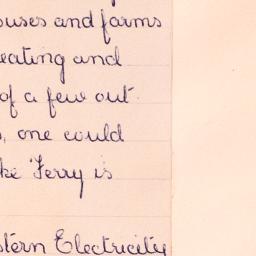 ouses and farms
eating and
of a few out
, one could
ke Ferry is
stern Electricity